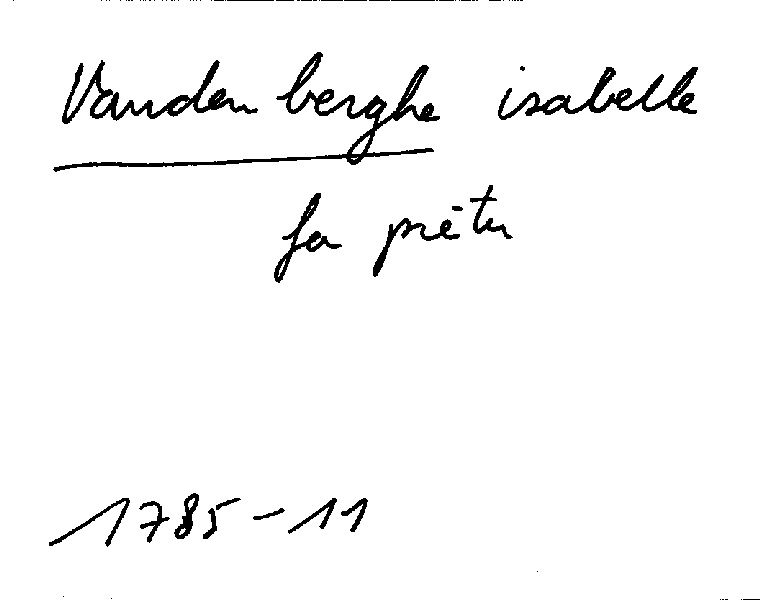 Vanden berghe isabelle
fa piétu
1785-11